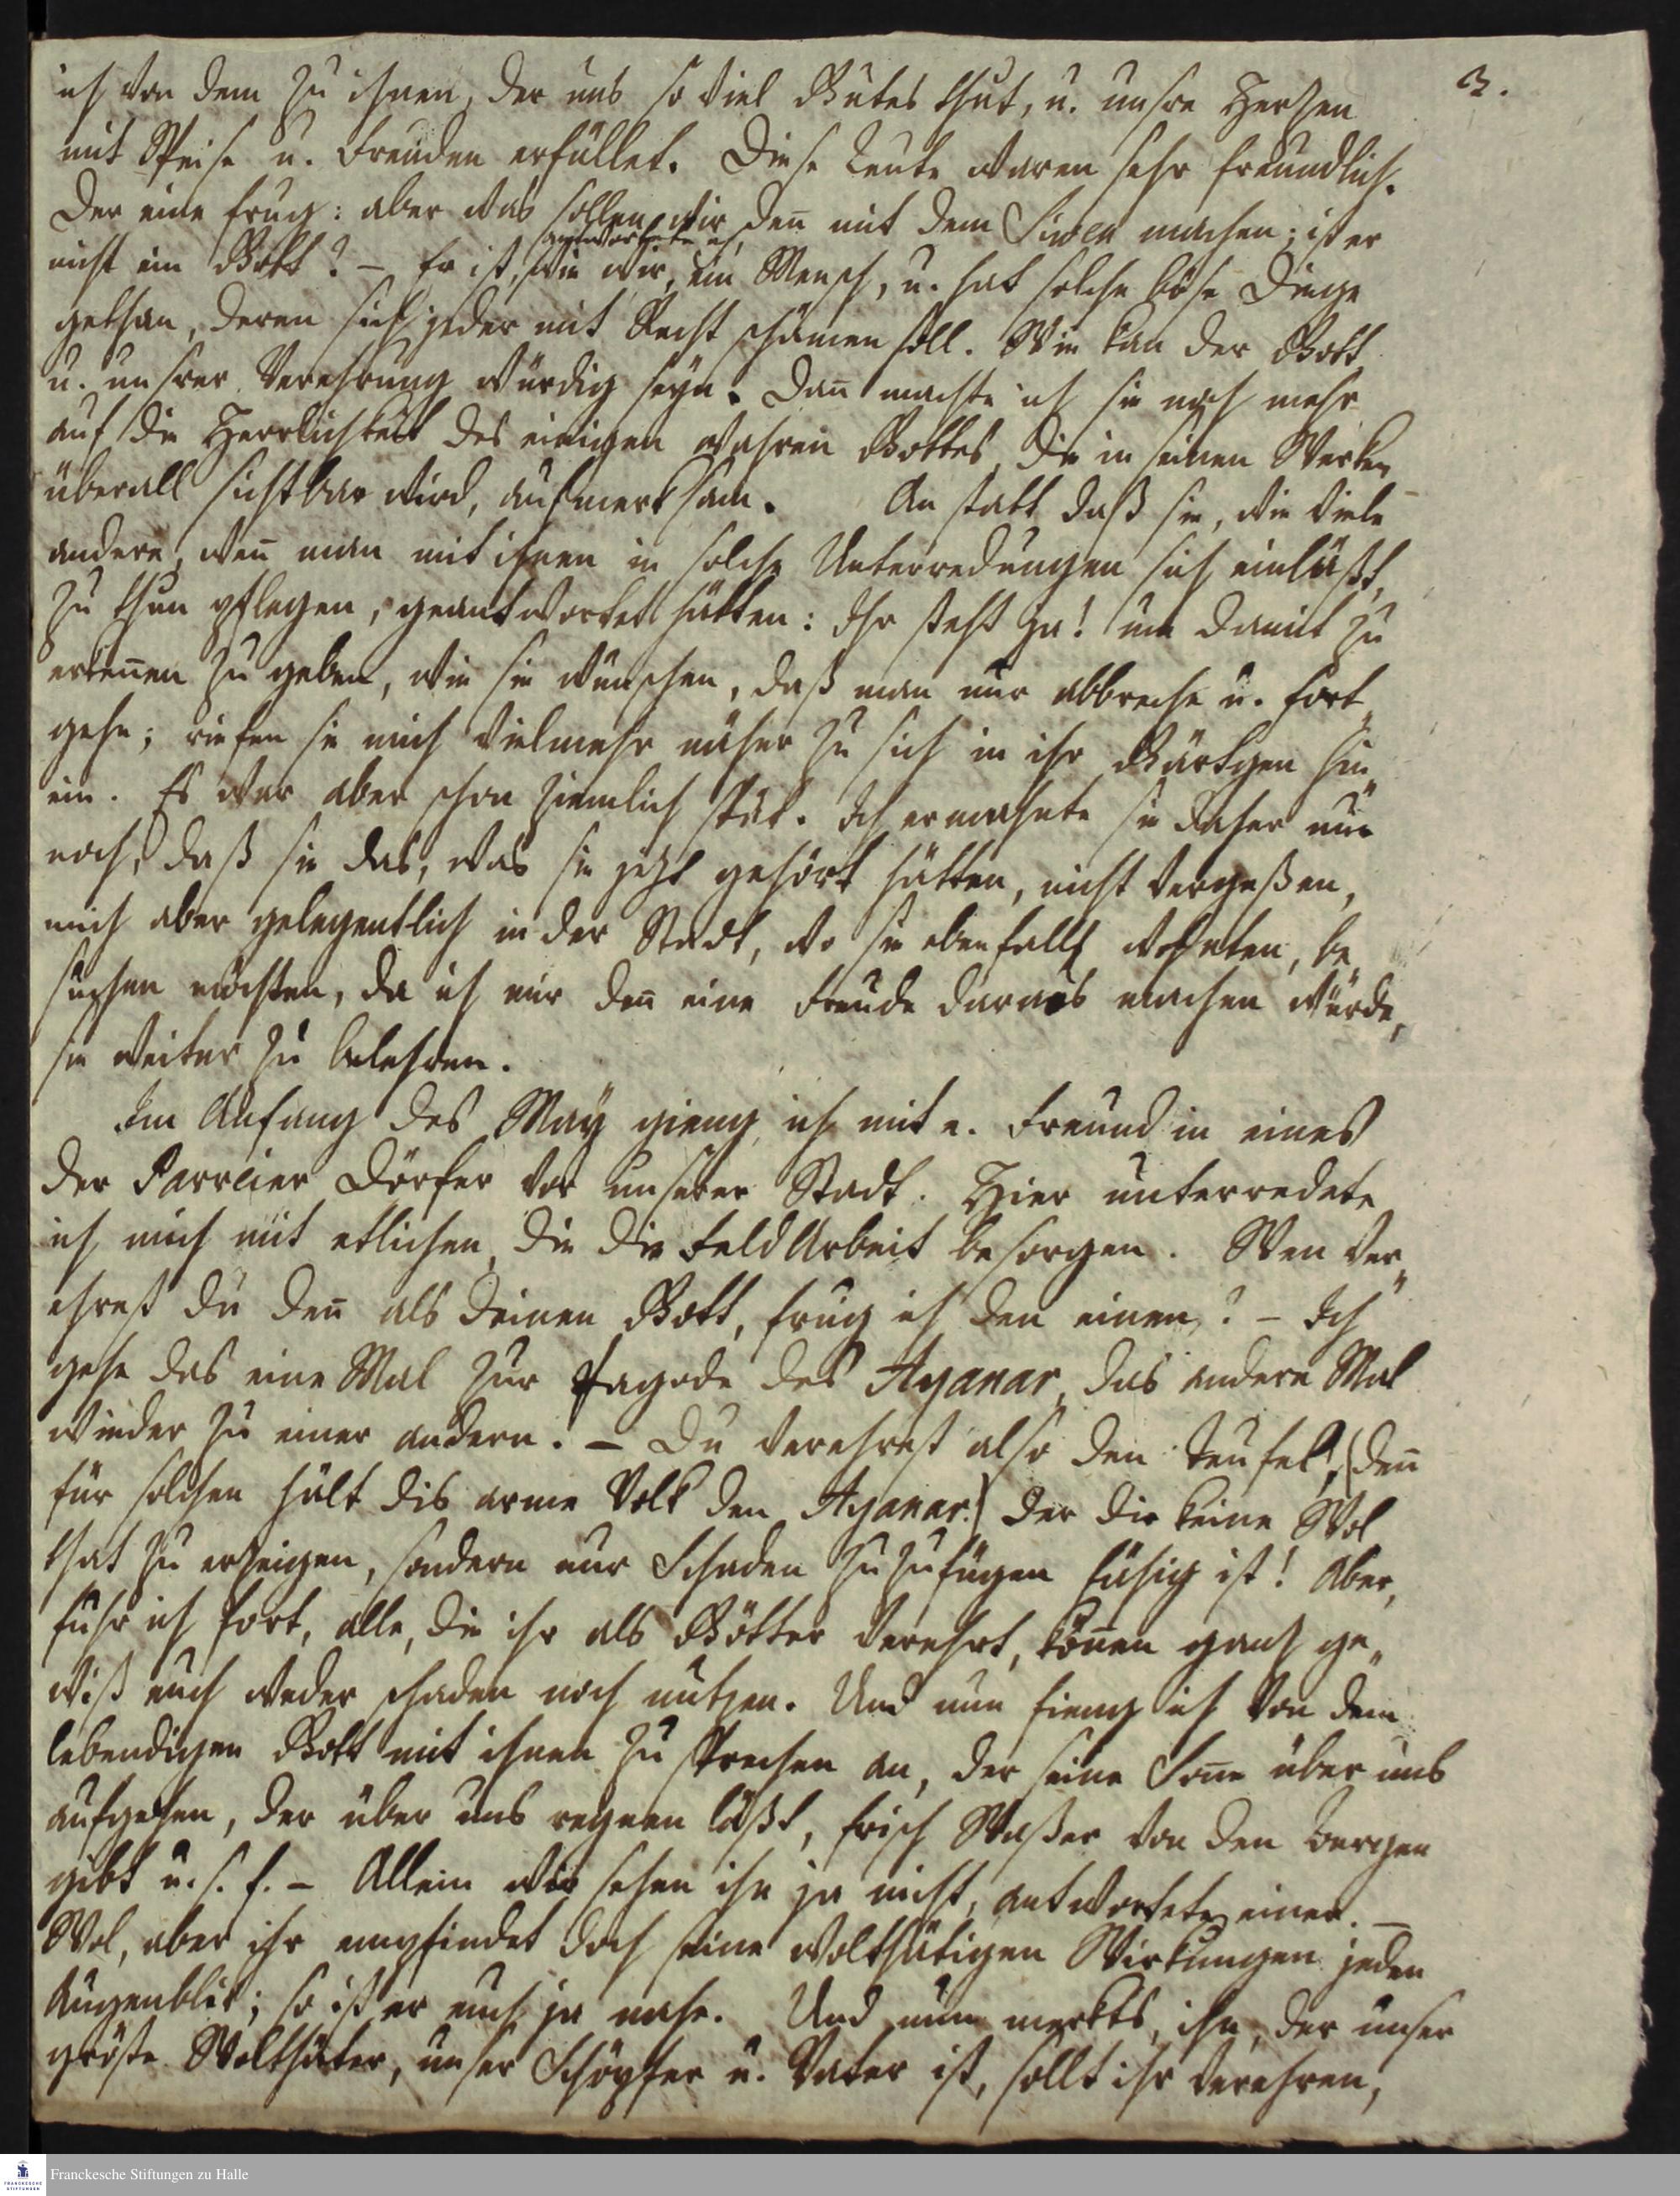 3.
ich von dem zu ihnen, der uns so viel Gutes thut, u. unsre Herzen
mit Speise u. Freuden erfüllet. Diese Leute waren sehr freundlich.
Der eine frug: aber was sollen wir den̅ mit dem Siwen machen; ist er
nicht ein Gott? – Er ist, antwortete ich, wie wir, ein Mensch, u. hat solche böse Dinge
gethan, deren sich jeder mit Recht schämen soll. Wie kan der Gott
u. unsrer Verehrung würdig seyn. Dan̅ machte ich sie noch mehr
auf die Herrlichkeit des einigen wahren Gottes, die in seinen Werken
überall sichtbar wird, aufmerksam. An statt daß sie, wie viele
andere, wen̅ man mit ihnen in solche Unterredungen sich einläßt,
zu thun pflegen, geantwortet hätten: Ihr steht ja! um damit zu
erken̅en zu geben, wie sie wünschen, daß man nur abbreche u. fort„
gehe; riefen sie mich vielmehr näher zu sich in ihr Gärtgen hin„
ein. Es war aber schon ziemlich spät. Ich ermahnte sie daher nur
noch, daß sie das, was sie jetzt gehört hätten, nicht vergeßen,
mich aber gelegentlich in der Stadt, wo sie ebenfalls wohnten, be„
suchen möchten, da ich mir den̅ eine Freude daraus machen würde,
sie weiter zu belehren.
Im Anfang des May gieng ich mit e. Freund in eines
der Parreier Dörfer vor unserer Stadt. Hier unterredete
ich mich mit etlichen, die die Feld Arbeit besorgen. Wen ver„
ehrest du den̅ als deinen Gott, frug ich den einen? – Ich
gehe das eine Mal zur Pagode des Ayanar, das andere Mal
wieder zu einer andern. – Du verehrest also den Teufel, (den̅
für solchen hält dis arme Volk den Ayanar.) der dir keine Wol
that zu erzeigen, sondern nur Schaden zuzufügen fähig ist! Aber,
fuhr ich fort, alle, die ihr als Götter verehrt, kön̅en ganz ge„
wiß euch weder schaden noch nutzen. Und nun fieng ich von dem
lebendigen Gott mit ihnen zu sprechen an, der seine Son̅e über uns
aufgehen, der über uns regnen läßt, frisch Waßer von den Bergen
gibt u. s. f. – Allein wir sehen ihn ja nicht, antwortete einer. –
Wol, aber ihr empfindet doch seine wolthätigen Wirkungen jeden
Augenblik; so ist er euch ja nahe. Und nun merkts, ihn, der unser
gröste Wolthäter, unser Schöpfer u. Vater ist, sollt ihr verehren,
Franckesche Stiftungen zu Halle